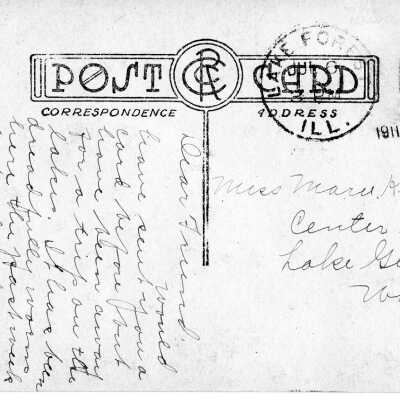 POST CARD
CORRESPONDENCE
ADDRESS
LAKE FOREST
ILL.
1911
Dear Friend
Would
have sent you a
card before but
have been away
for a trip on the
lakes. It has been
dreadfully warm
here the past week
Miss Marie
Center
Lake